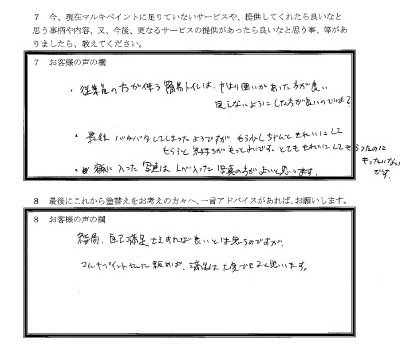 ７　今、現在マルキペイントに足りていないサービスや、提供してくれたら良いなと
思う事柄や内容、又、今後、更なるサービスの提供があったら良いなと思う事、等があ
りましたら、教えてください。
７　お客様の声の欄
・従業員の方が使う簡易トイレは、やはり囲いがあった方が良い
見えないようにした方が良いのでは？
・最後 バタバタしてしまったようですが もう少しちゃんときれいにして
もらうと気持ちがもっとよいです。とてもきれいにしてもらったのに
もったいない
です。
・に入った写真は 人が入った写真の方がよいと思います。
８　最後にこれから塗替えをお考えの方々へ、一言アドバイスがあれば、お願いします。
８　お客様の声の欄
結局、自己満足さえすれば良いとは思うのですが、
マルキペイントさんに頼めば、満足は大変できると思います。